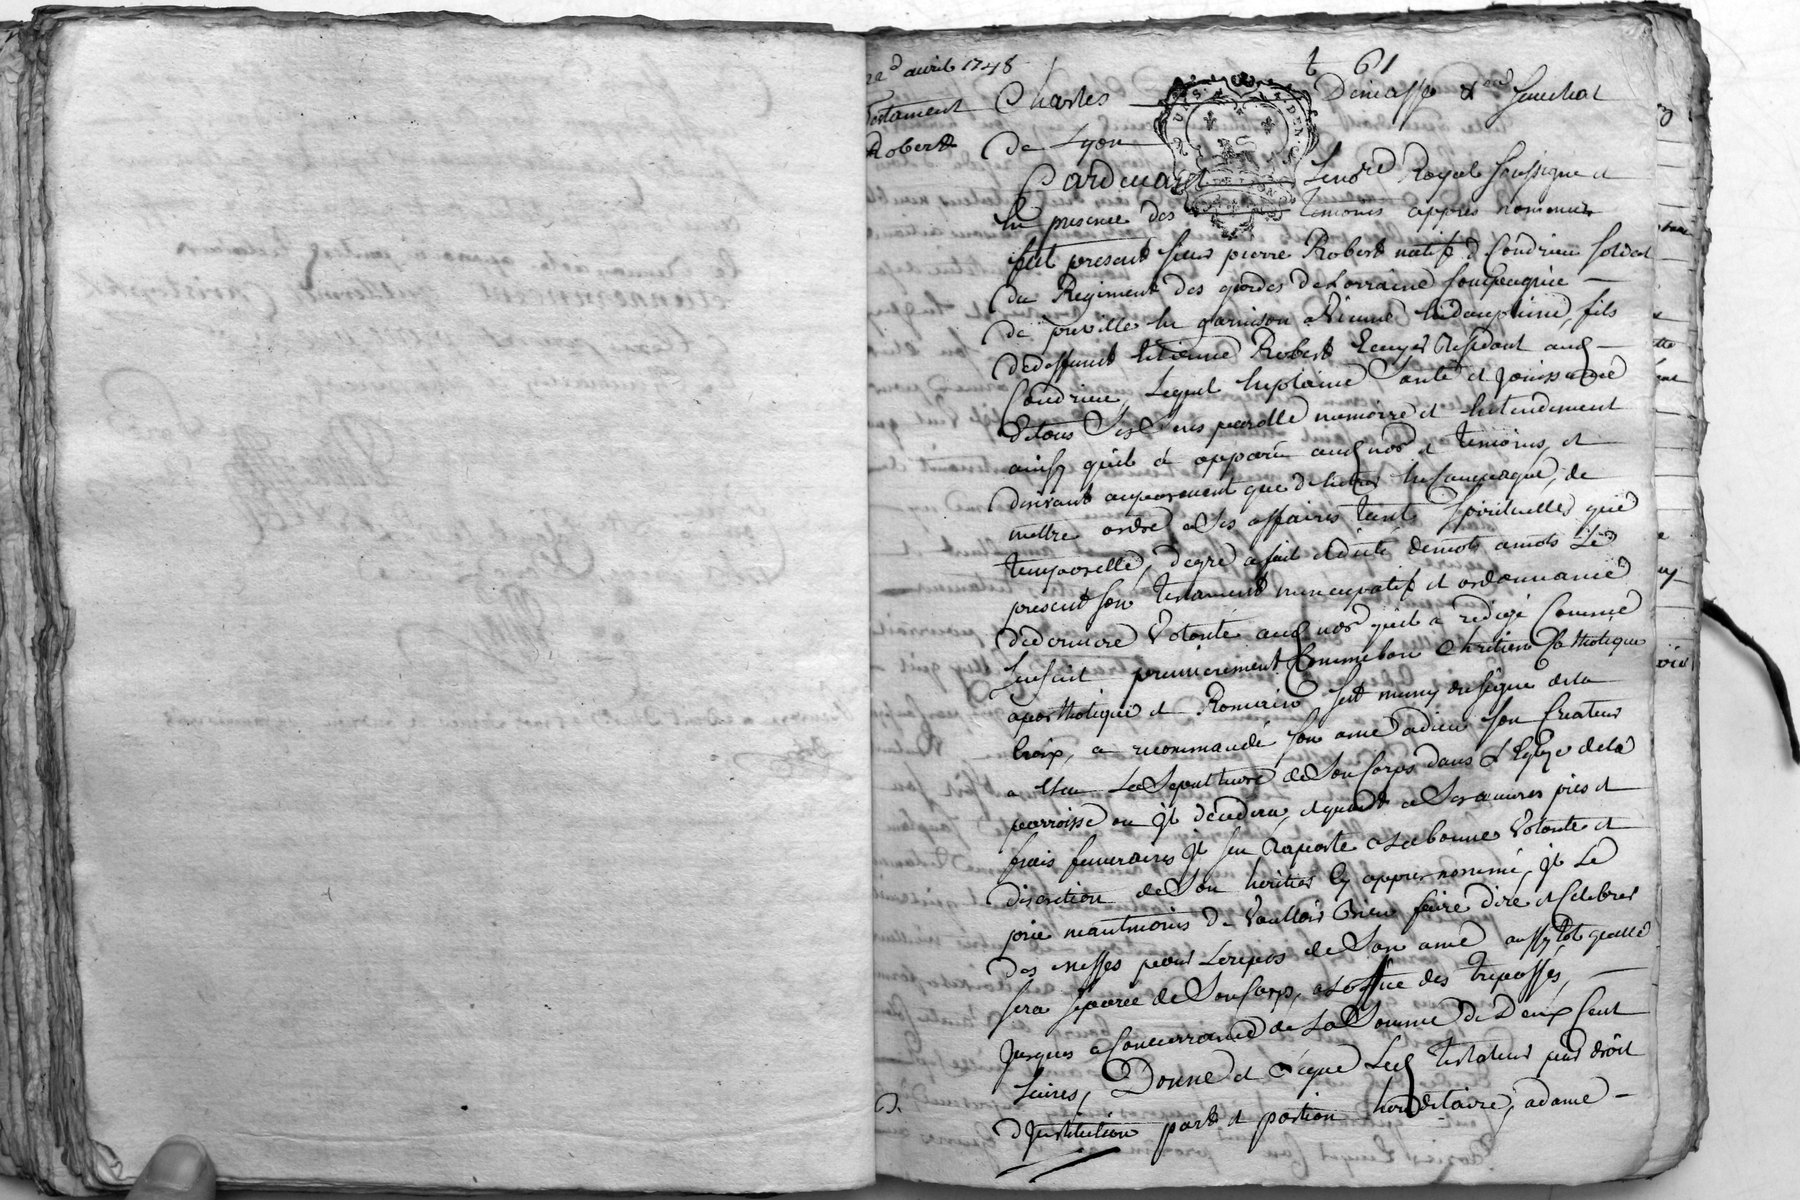 22d avril 1748
testament
Robert
t 61
Charles Demasso Senechal
de Lyon
Pardevant Royal soussigné et
En presence des temoins appres nommés
fut present sieur pierre Robert natif de Condrieu soldat
du Regiment des gardes de Lorraine Compagnie —
de en garnison a Vienne en dauphiné, fils
de deffunt Etienne Robert Ecuyer Residant aud —
Condrieu, Lequel En plaine santé et jouissance
de tous ses sens parolle memoire et Entendement
ainsy quil à apparu aud nore et temoins, et
desirant auparavant que d'entrer En Campagne, de
mettre ordre a ses affaires tant spirituelles que
temporelle, de gré a fait et dicté de mots a mots Le
present son testament nuncupatif et ordonnance
de derniere Volonté aud nore quil a redigé Comme
sensuit premierement Comme bon Chretien Catholique
apostholique et Romain, sest muny du signe de la
Croix, a recommandé son ame a dieu son Createur
a Elu La Sepulture de Son Corps dans L'Eglize de la
parroisse ou jl decedera, et quant a Ses œuvres pies et
frais funeraires jl sen raporte a La bonne Volonté et
discretion de Son heritier Cy appres nommé, jl Le
prie neantmoins de Vouloir bien faire dire et Celebrer
des messes pour Le repos de Son ame aussytot quelle
sera separée de Son Corps, a Loffice des trepassés, —
jusques a Concurrance de La Somme de Deux Cent
Livres, Donne et Legue Led testateur par droit
d'jnstitution part et portion hereditaire, a dame —